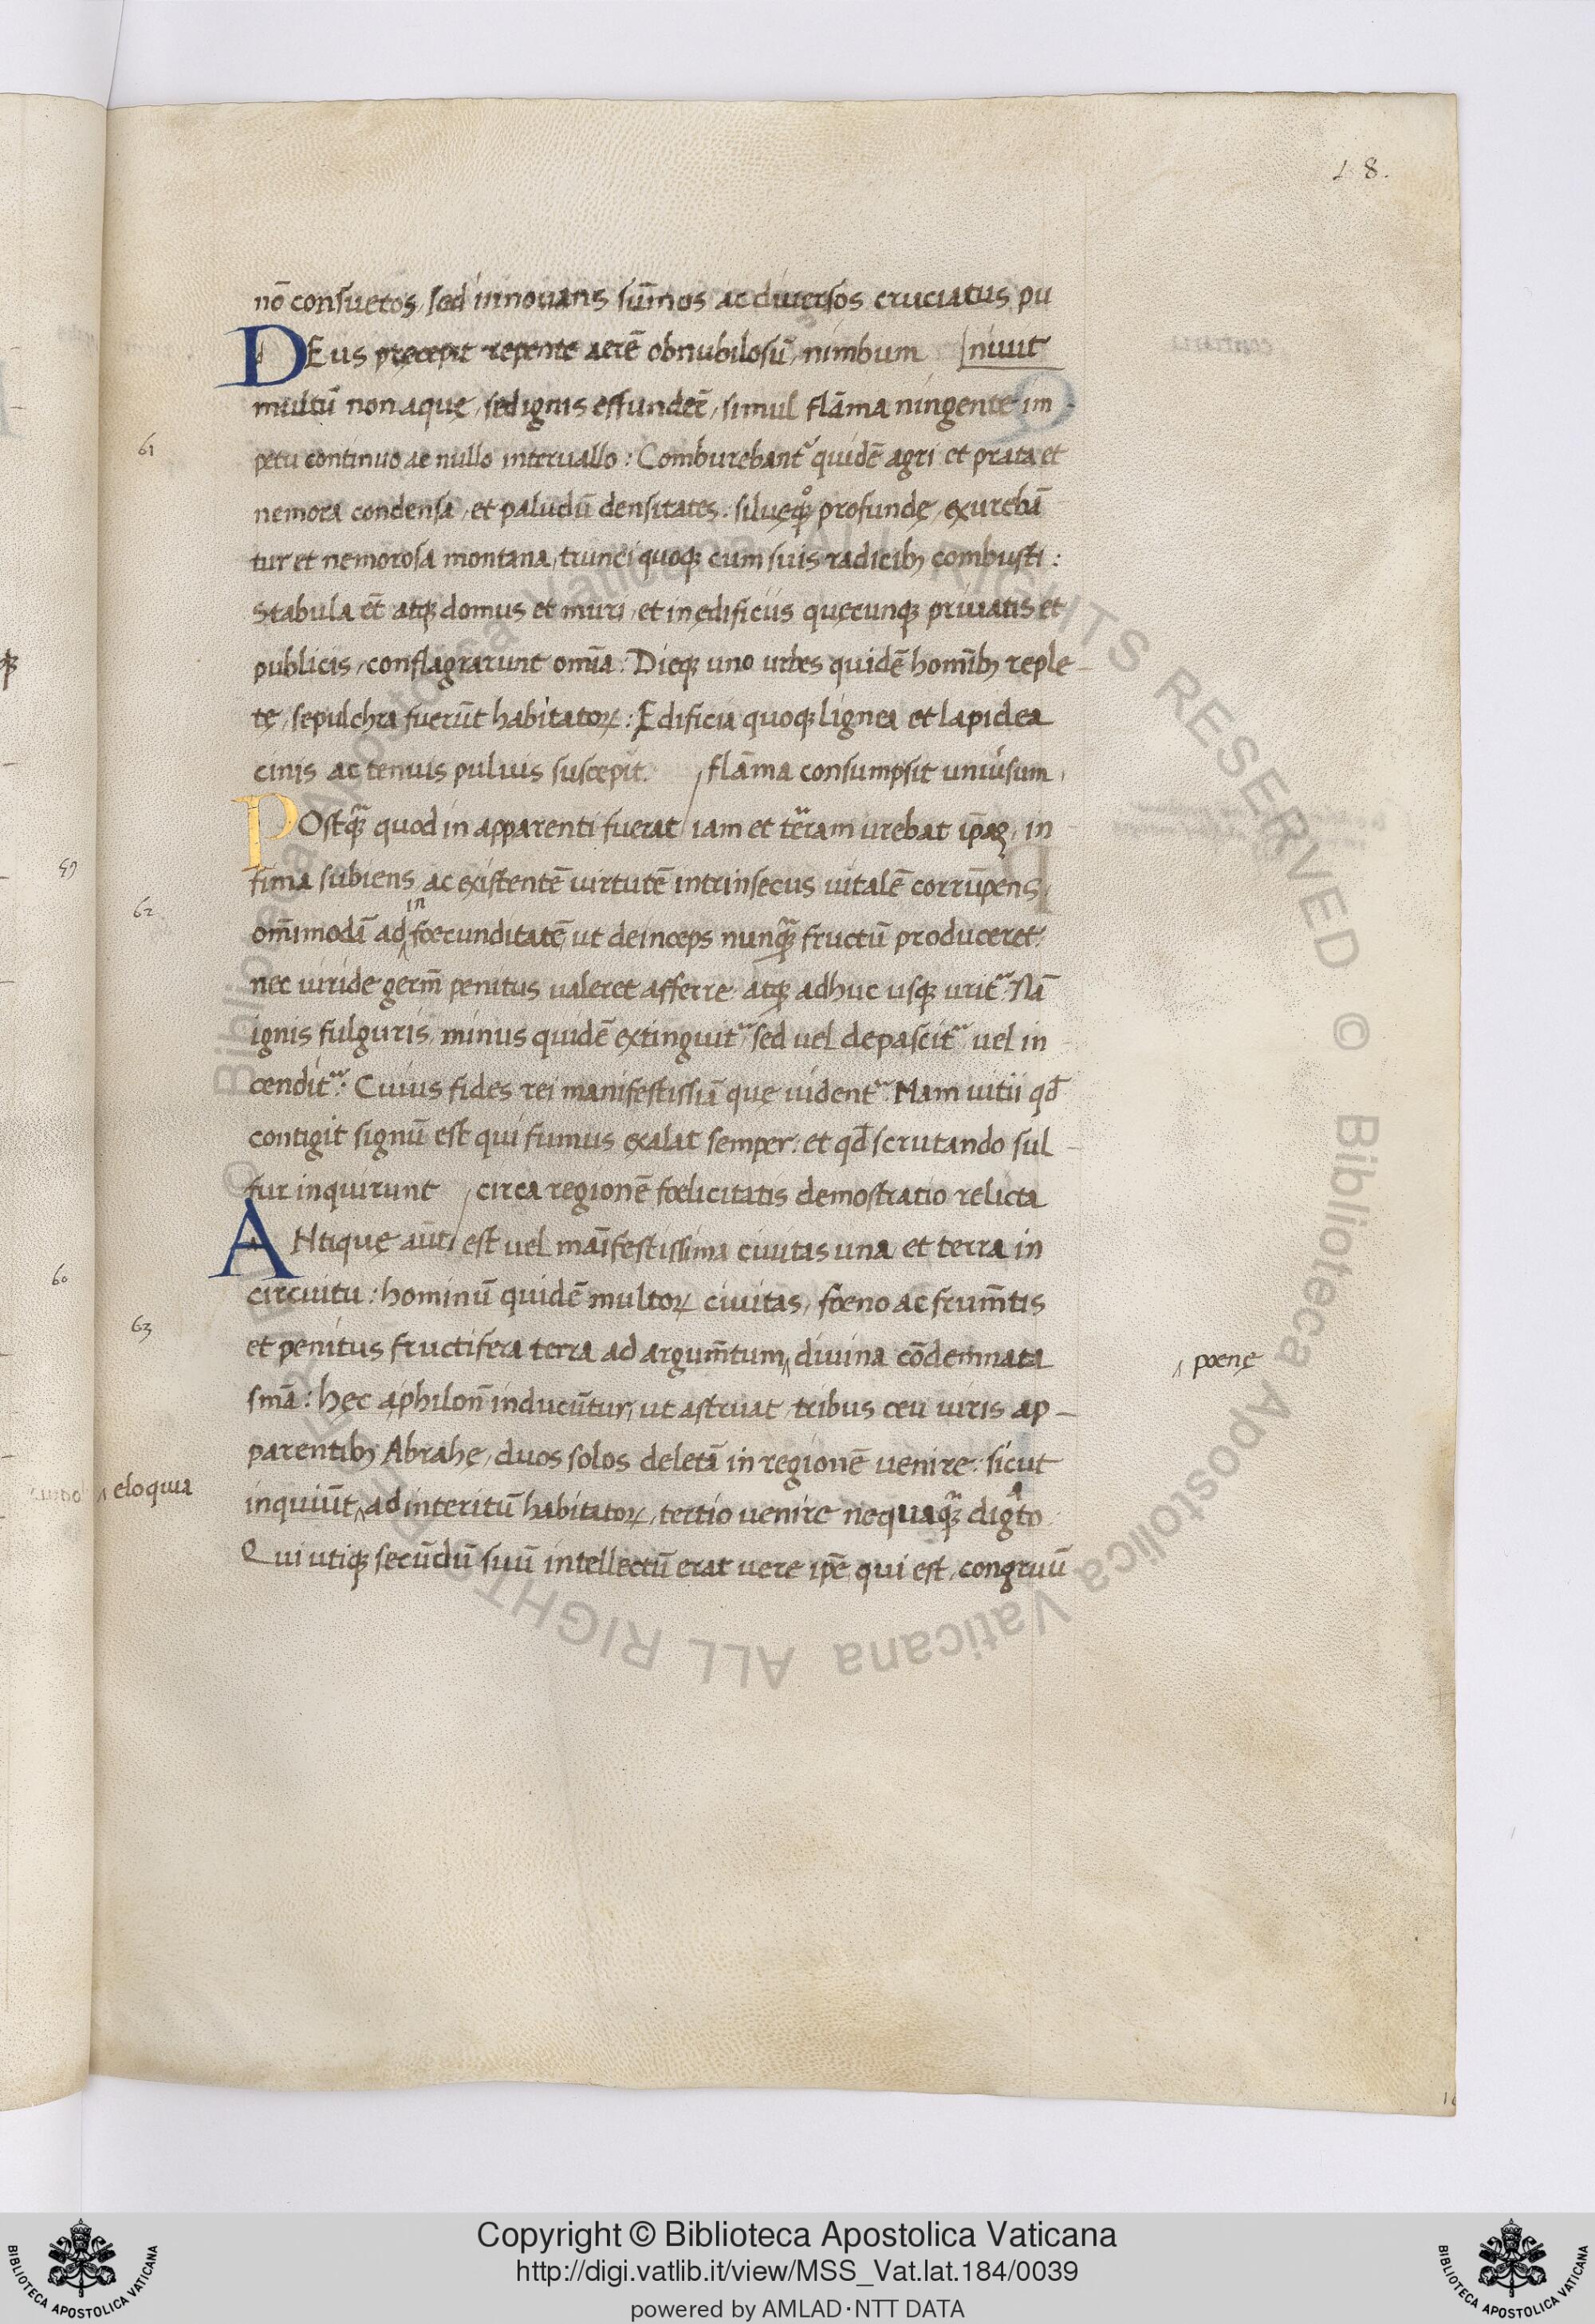 18.
nō consuetos, sed innouans sūmos ac diuersos cruciatus pu
DEus pręcepit repente aerē obnubilosū, nimbum [niuit
multū non aquę, sed ignis effunderē, simul flāma ningente im
61
petu continuo ac nullo interuallo: Comburebant᷑ quidē agri et prata et
nemora condensa, et paludū densitates. siluęqꝫ profundę, exurebā
tur et nemorosa montana, trunci quoqꝫ cum suis radicibꝫ combusti:
Stabula et̄ atqꝫ domus et muri, et in ędificiis quęcunqꝫ priuatis et
publicis, conflagrarunt om̄ia: Dieqꝫ uno urbes quidē homı̄bꝫ reple-
tę, sepulchra fuerūt habitatoꝝ: Edificia quoqꝫ lignea et lapidea
cinis ac tenuis puluis suscepit. / flāma consumpsit uniu̓sum,
POstqꝫ̄ quod in apparenti fuerat / iam et terram urebat ip̄aꝫ, in
fima subiens, ac existentē virtutē intrinsecus uitalē corrūpens,
62
om̄imodā ad ^in foecunditatē, ut deinceps nunqꝫ̄ fructū produceret:
nec uiride germ̄ penitus ualeret afferre. atqꝫ adhuc usqꝫ urit᷑. Nā
ignis fulguris, minus quidē extinguit᷑, sed uel depascit᷑ uel in
cendit᷑. Cuius fides rei manifestissīa que uident᷑. Nam uitii qđ
contigit signū est qui fumus exalat semper. et qđ scrutando sul-
fur inquirunt / circa regionē foelicitatis demostratio relicta
ANtiquę aūt / est uel māifestissima ciuitas una et terra in
circuitu: hominū quidē multoꝝ ciuitas, foeno ac frum̄tis
63
et penitus fructifera terra ad argum̄tum, ^ diuina cōdemnata
^ poenę
sm̄a: hęc a philon̄ inducūtur, ut astruat, tribus ceu uiris ap-
parentibꝫ Abrahę, duos solos deletā in regionē uenire: sicut
^ eloquia
inquiūt, ^ ad interitū habitatoꝝ, tertio uenire nequaqꝫ̄ dig̃to
Qui utiqꝫ secūdū suū intellectū erat uere ip̄e, qui est, congruū
Copyright © Biblioteca Apostolica Vaticana
http://digi.vatlib.it/view/MSS_Vat.lat.184/0039
powered by AMLAD·NTT DATA